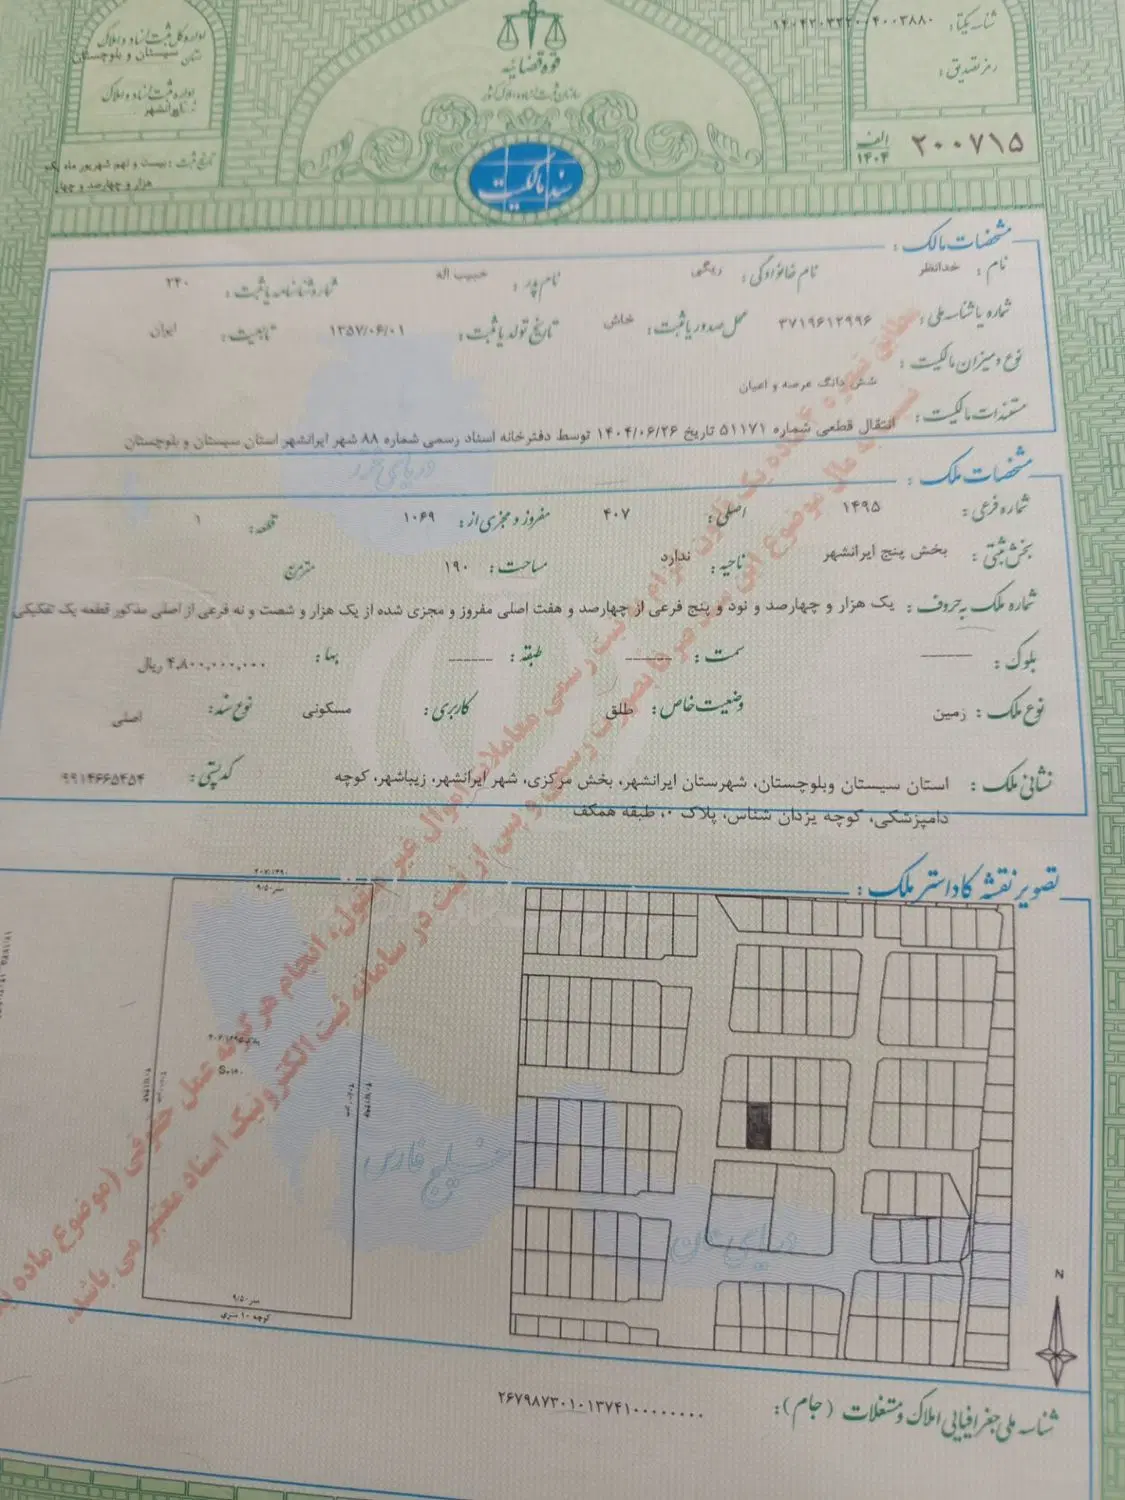 اداره کل ثبت اسناد و املاک
استان سیستان و بلوچستان
اداره ثبت اسناد و املاک
ایرانشهر
تاریخ ثبت: بیست و نهم شهریور ماه یک
هزار و چهارصد و چهار
قوه قضائیه
سازمان ثبت اسناد و املاک کشور
سند مالکیت
شناسه یکتا: ۱۴۰۴۲۰۳۲۲۰۰۴۰۰۳۸۸۰
رمز تصدیق:
الف
۱۴۰۴
۲۰۰۷۱۵
مشخصات مالک:
نام: خدانظر نام خانوادگی: ریگی نام پدر: حبیب اله شماره شناسنامه یا ثبت: ۲۴۰
شماره یا شناسه ملی: ۳۷۱۹۶۱۲۹۹۶ محل صدور یا ثبت: خاش تاریخ تولد یا ثبت: ۱۳۵۷/۰۶/۰۱ تابعیت: ایران
نوع و میزان مالکیت: شش دانگ عرصه و اعیان
مستندات مالکیت: انتقال قطعی شماره ۵۱۱۷۱ تاریخ ۱۴۰۴/۰۶/۲۶ توسط دفترخانه اسناد رسمی شماره ۸۸ شهر ایرانشهر استان سیستان و بلوچستان
مشخصات ملک:
شماره فرعی: ۱۴۹۵ اصلی: ۴۰۷ مفروز و مجزی از: ۱۰۶۹ قطعه: ۱
بخش ثبتی: بخش پنج ایرانشهر ناحیه: ندارد مساحت: ۱۹۰ مترمربع
شماره ملک به حروف: یک هزار و چهارصد و نود و پنج فرعی از چهارصد و هفت اصلی مفروز و مجزی شده از یک هزار و شصت و نه فرعی از اصلی مذکور قطعه یک تفکیکی
بلوک: ------ سمت: ------ طبقه: ------ بها: ۴,۸۰۰,۰۰۰,۰۰۰ ریال
نوع ملک: زمین وضعیت خاص: طلق کاربری: مسکونی نوع سند: اصلی
نشانی ملک: استان سیستان وبلوچستان، شهرستان ایرانشهر، بخش مرکزی، شهر ایرانشهر، زیباشهر، کوچه
دامپزشکی، کوچه یزدان شناس، پلاک ۰، طبقه همکف
کدپستی: ۹۹۱۴۶۶۵۴۵۴
دریای خزر
تصویر نقشه کاداستر ملک:
۹/۵۰ متر
خلیج فارس
دریای عمان
۹/۵۰ متر
کوچه ۱۰ متری
N
شناسه ملی جغرافیایی املاک و مستغلات (جام): ۲۶۷۹۸۷۳۰۱۰۱۳۷۴۱۰۰۰۰۰۰۰۰